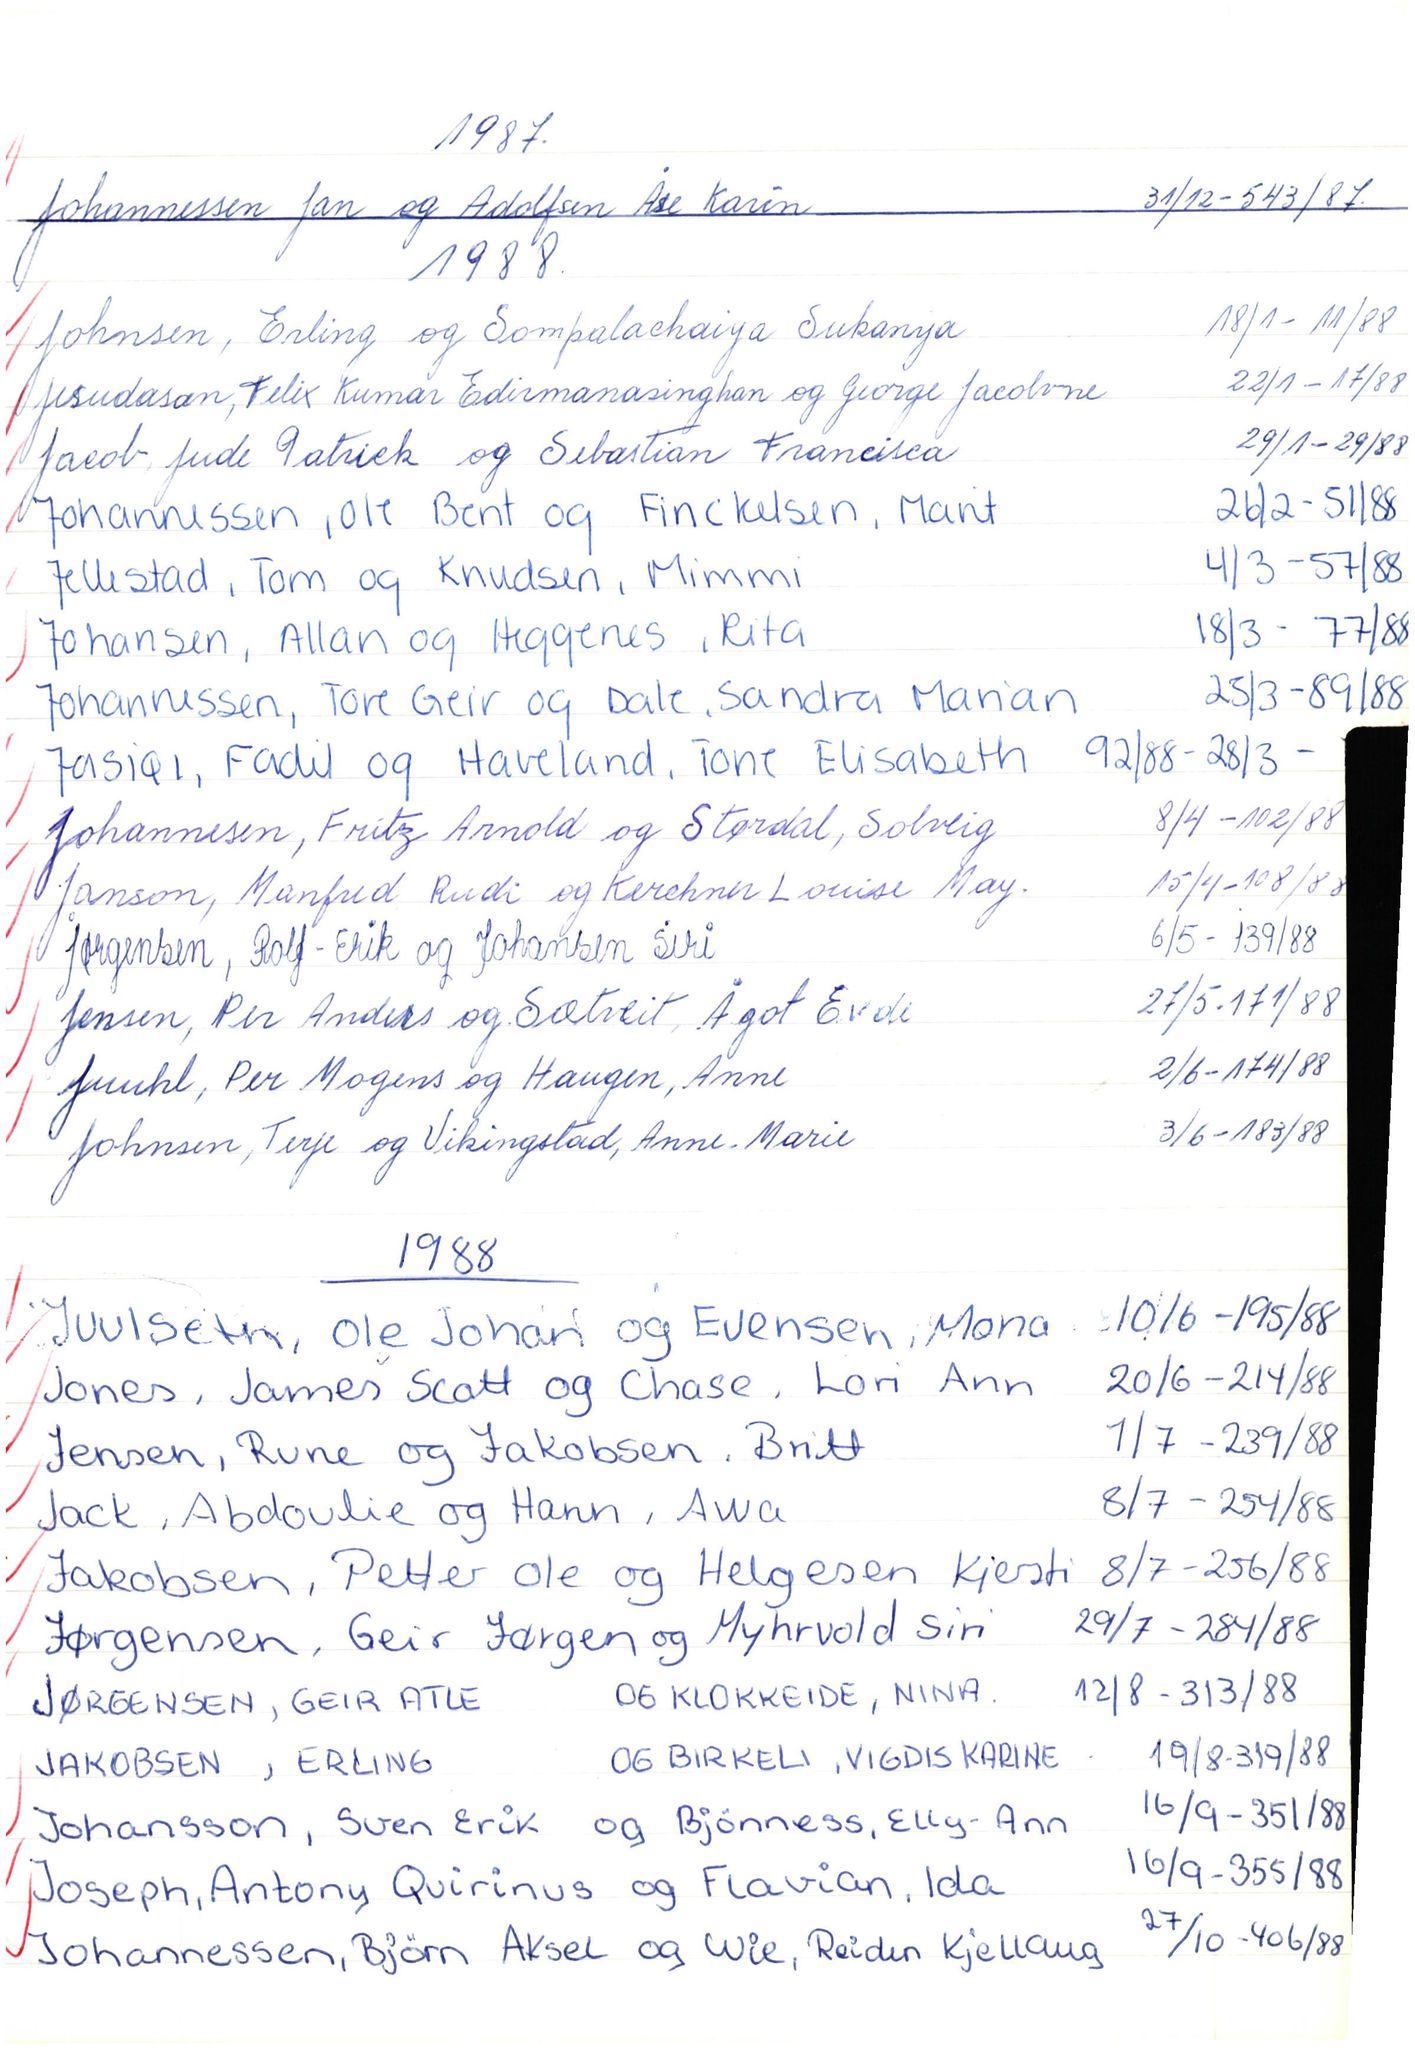 1987.
Johannessen Jan og Adolfsen Åse Karin 31/12-543/87.
1988.
Johnsen, Erling og Sompalachaiya Sukanya 18/1-11/88
Jesudasan, Felix Kumar Edirmanasinghan og George Jacobine 22/1-17/88
Jacob, Jude Patrick og Sebastian Francisca 29/1-29/88
Johannessen, Ole Bent og Finckelsen, Marit 26/2-51/88
Jellestad, Tom og Knudsen, Mimmi 4/3-57/88
Johansen, Allan og Heggenes, Rita 18/3-77/88
Johannessen, Tore Geir og Dale, Sandra Marian 25/3-89/88
Jasiqi, Fadil og Haveland, Tone Elisabeth 92/88-28/3-
Johannesen, Fritz Arnold og Størdal, Solveig 8/4-102/88
Janson, Manfred Rudi og Kerchner Louise May. 15/4-108/88
Jørgensen, Rolf-Erik og Johansen Siri 6/5-139/88
Jensen, Per Anders og Sætveit, Ågot 27/5-171/88
Juuhl, Per Mogens og Haugen, Anne 2/6-174/88
Johnsen, Terje og Vikingstad, Anne-Marie 3/6-183/88
1988
Ole Johan og Evensen, Mona 10/6-195/88
Jones, James Scott og Chase, Lori Ann 20/6-214/88
Jensen, Rune og Jakobsen, Britt 1/7-239/88
Jack, Abdoulie og Hann, Awa 8/7-254/88
Jakobsen, Petter Ole og Helgesen Kjersti 8/7-256/88
Jørgensen, Geir Jørgen og Myhrvold Siri 29/7-284/88
JØRGENSEN, GEIR ATLE OG KLOKKEIDE, NINA. 12/8-313/88
JAKOBSEN, ERLING OG BIRKELI, VIGDIS KARINE 19/8-319/88
Johansson, Sven Erik og Bjönness, Elly-Ann 16/9-351/88
Joseph, Antony Quirinus og Flavian, Ida 16/9-355/88
Johannessen, Björn Aksel og Wie, Reidun Kjellaug 27/10-406/88